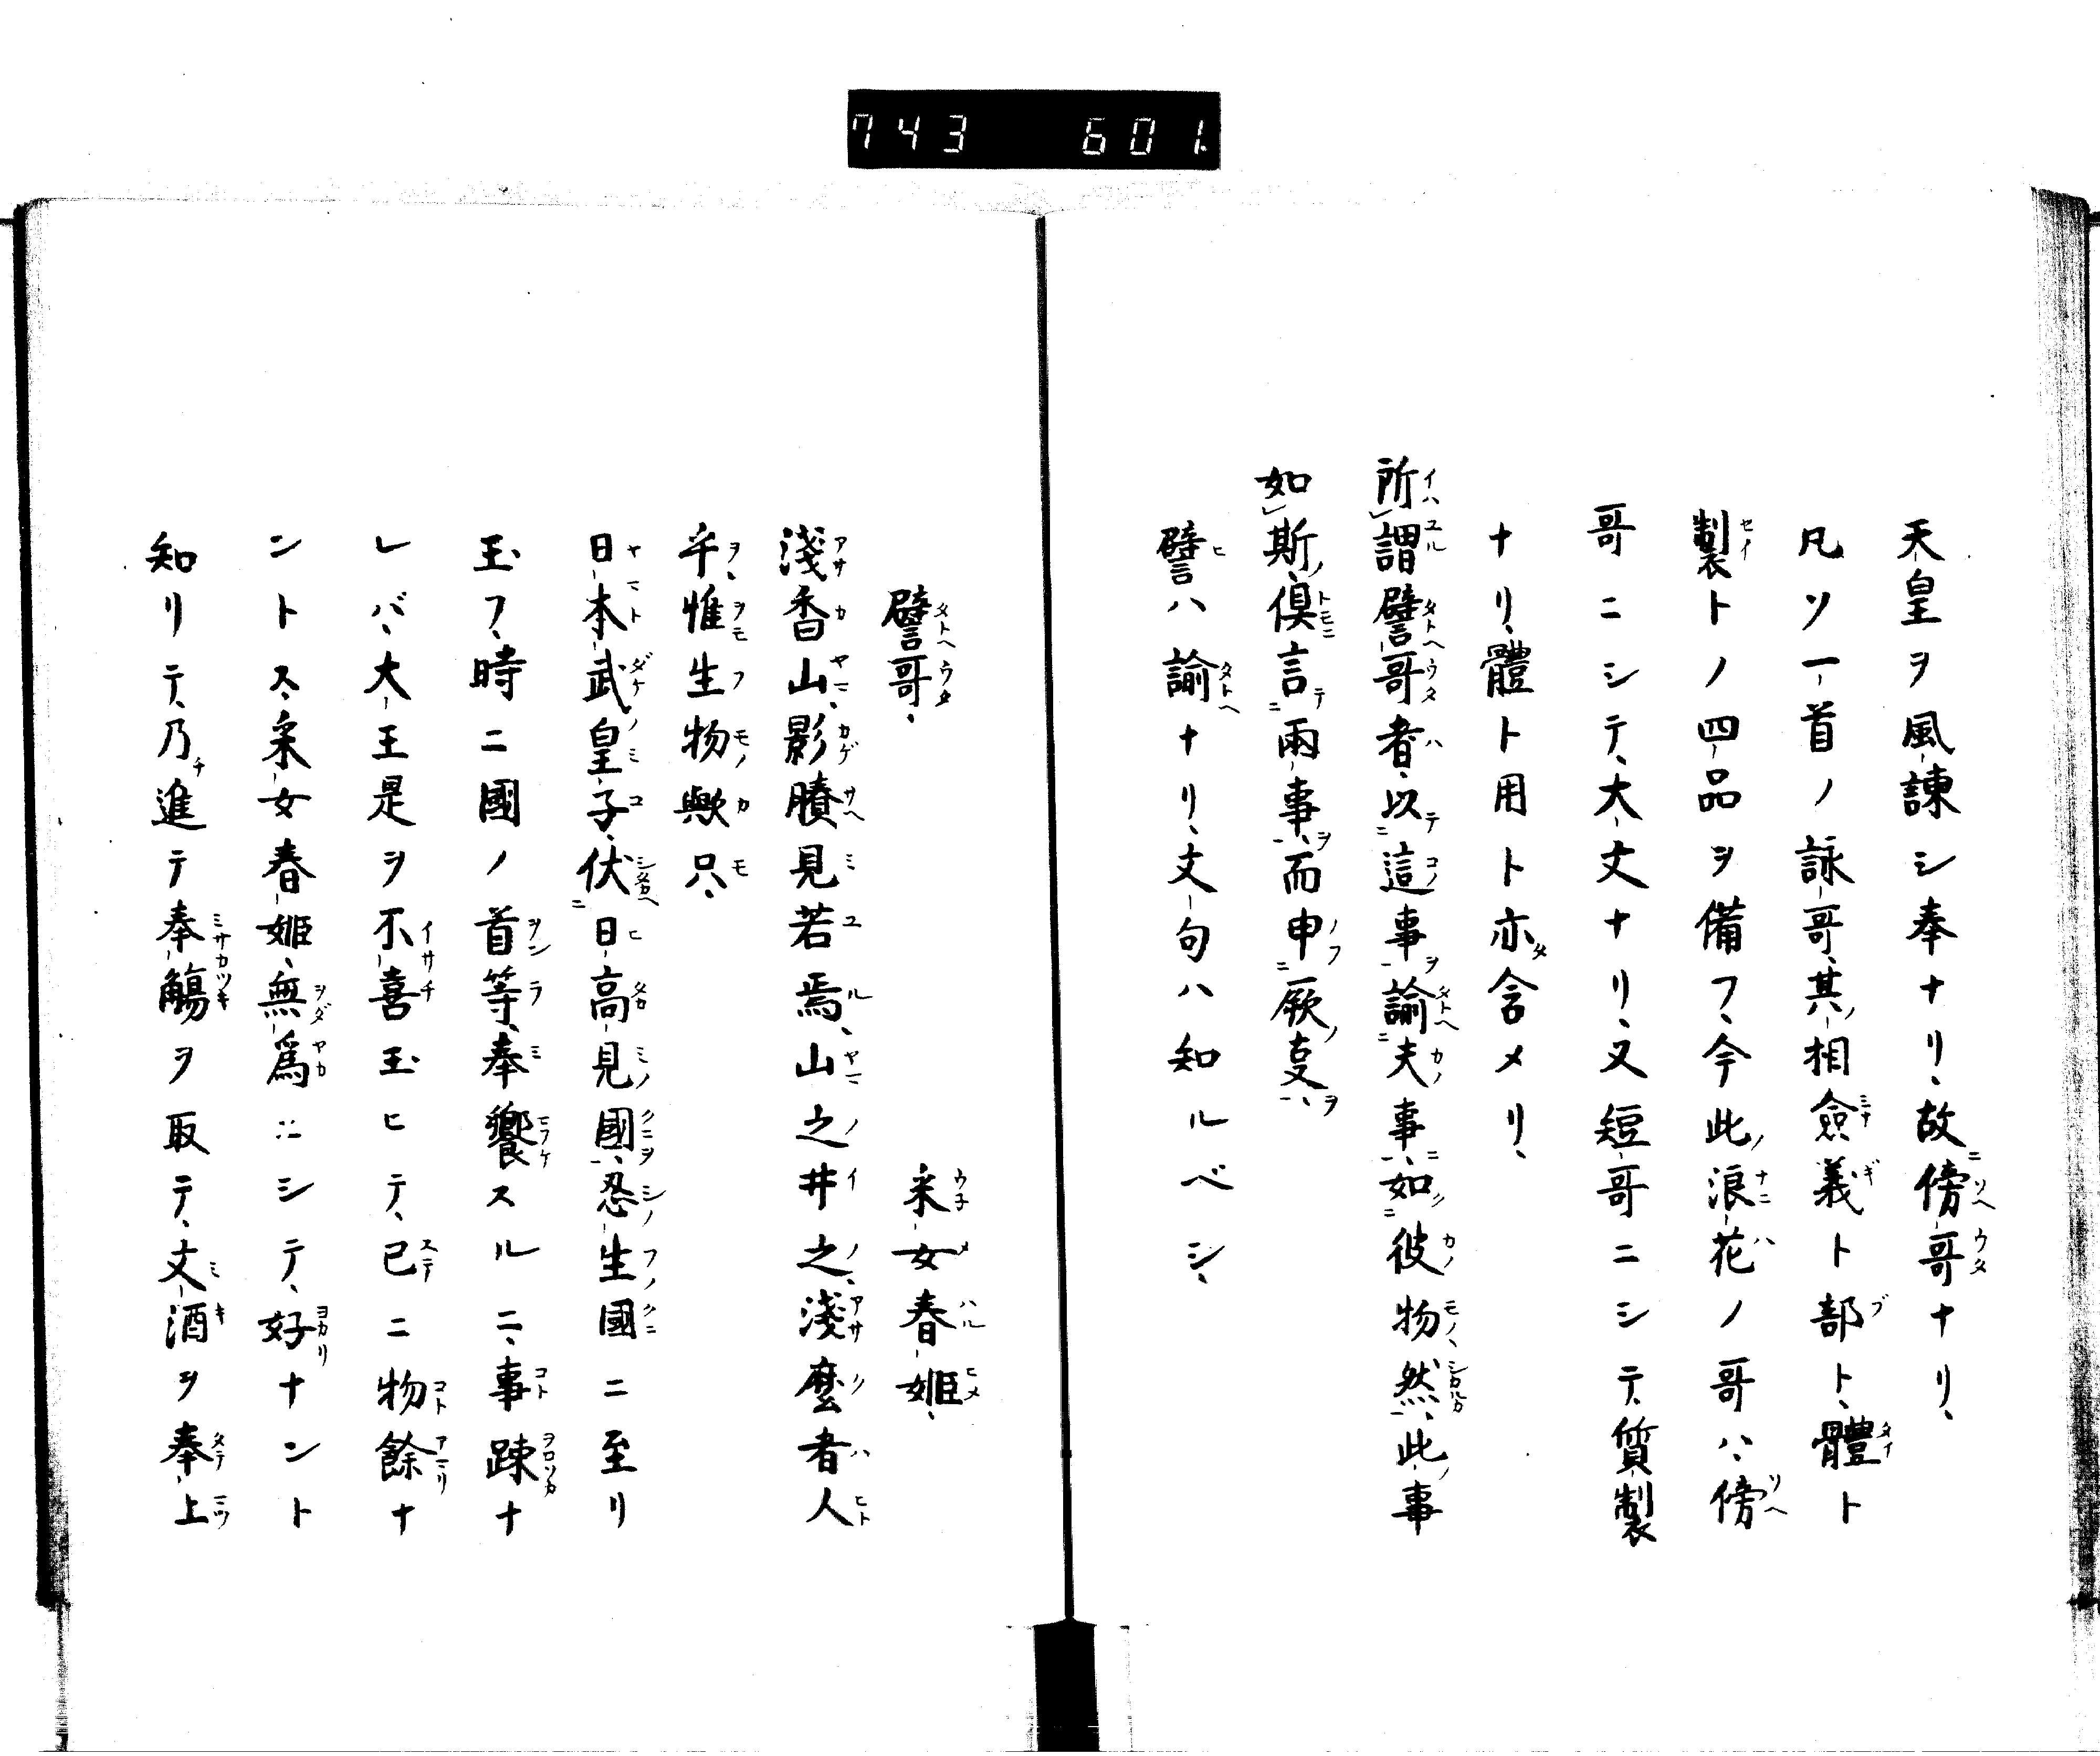 743 601
天皇ヲ風諫シ奉ナリ、故傍哥ナリ、
凡ソ一首ノ詠哥、其相僉義ト部ト、體ト
製トノ四品ヲ備フ、今此浪花ノ哥ハ、傍
哥ニシテ、大丈ナリ、又短哥ニシテ、質製
ナリ、體ト用ト亦含メリ、
所謂譬哥者、以這事諭夫事、如彼物然、此事
如斯、俱言兩事、而申厥㕝、
譬ハ諭ナリ、文句ハ知ルベシ、
譬哥、 采女春姬、
淺香山、影賸見若焉、山之井之、淺麼者人
乎、惟生物歟只、
日本武皇子、伏日高見國、忍生國ニ至リ
玉フ、時ニ國ノ首等、奉饗スルニ、事踈ナ
レバ、大王是ヲ不喜玉ヒテ、已ニ物餘ナ
ントス、采女春姬、無爲ニシテ、好ナント
知リテ、乃進テ奉觴ヲ取テ、文酒ヲ奉上